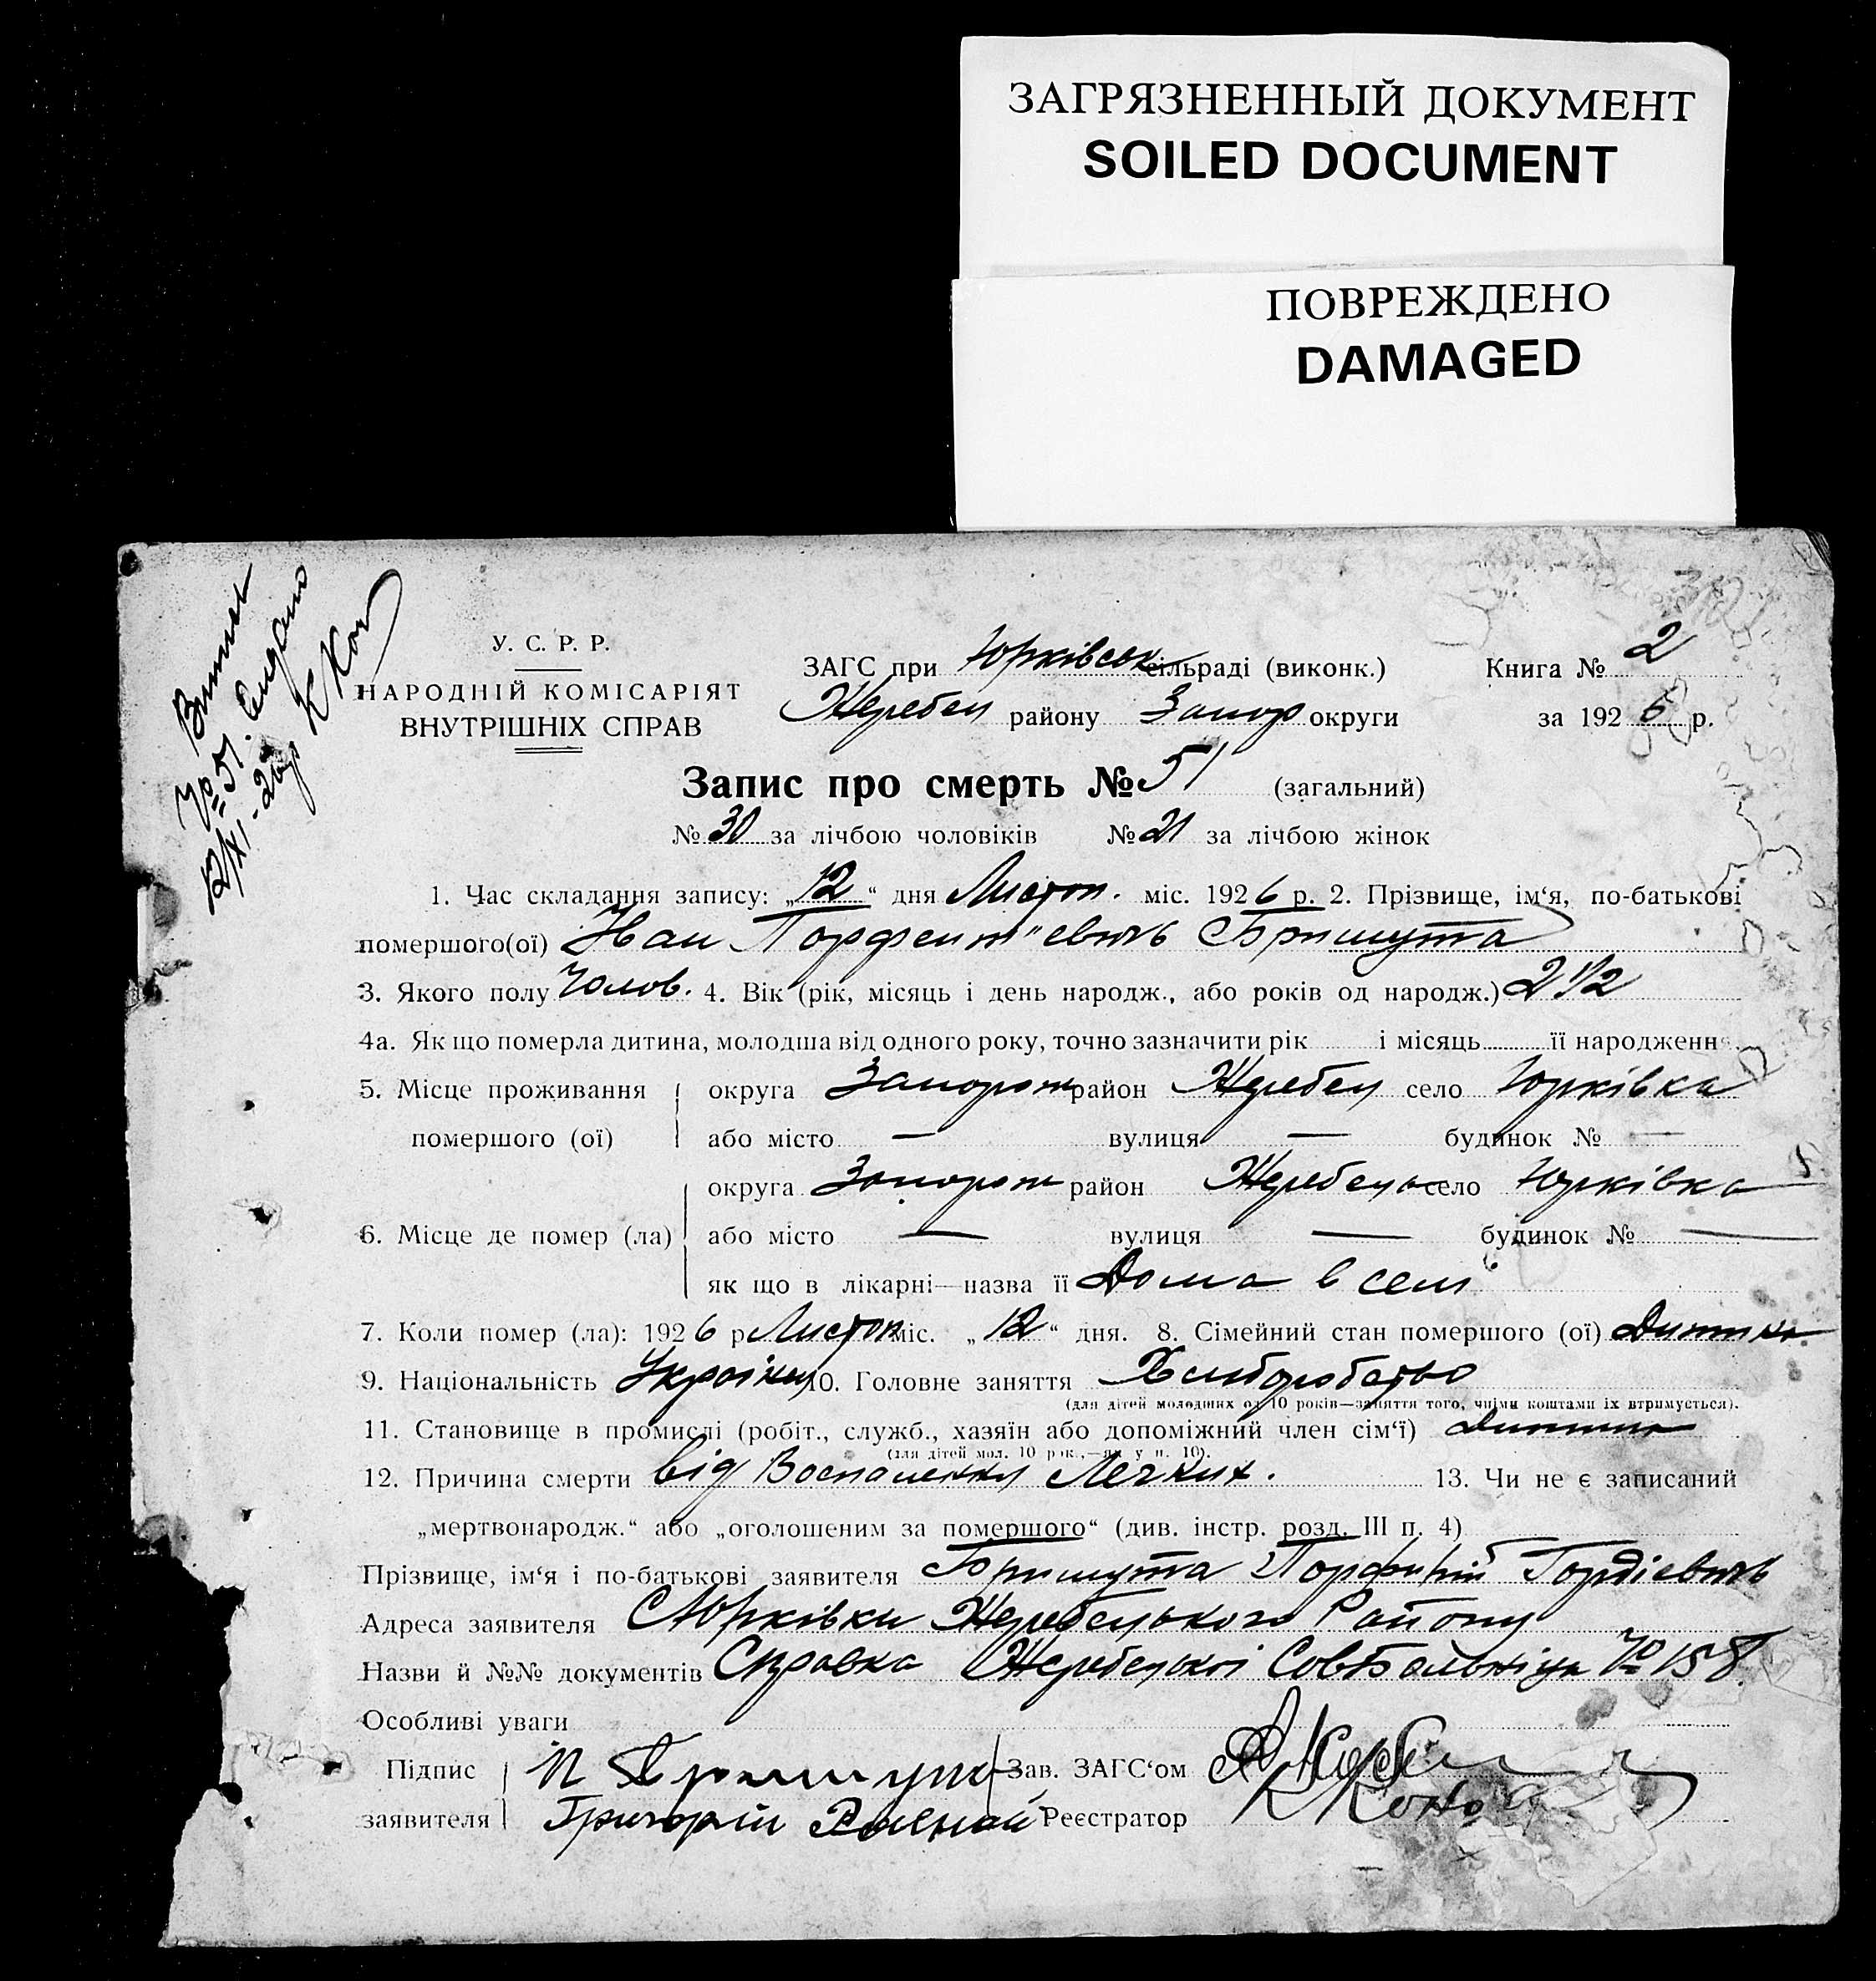 ЗАГРЯЗНЕННЫЙ ДОКУМЕНТ
SOILED DOCUMENT
ПОВРЕЖДЕНО
DAMAGED
№ 51. видано
12/XI-26р
У. С. Р. Р.
НАРОДНІЙ КОМІСАРІЯТ
ВНУТРІШНІХ СПРАВ
ЗАГС при Юрківськ сільраді (виконк.) Книга № 2
Жеребец району Запор округи за 1926 р.
Запис про смерть № 51 (загальний)
№ 30 за лічбою чоловіків № 21 за лічбою жінок
1. Час складання запису: „12“ дня Листоп. міс. 1926 р. 2. Прізвище, ім‘я, по-батькові
помершого(ої) Иван
3. Якого полу Чолов. 4. Вік (рік, місяць і день народж., або років од народж.) 2 1/2
4а. Як що померла дитина, молодша від одного року, точно зазначити рік і місяць її народженн
5. Місце проживання округа Запорож район Жеребец село Юрківка
помершого (ої) або місто — вулиця — будинок № —
округа Запорож район село Юрківка
6. Місце де помер (ла) або місто — вулиця — будинок № —
як що в лікарні—назва її Дома в селі
7. Коли помер (ла): 1926 р. Листоп міс. „12“ дня. 8. Сімейний стан помершого (ої) Дитина
9. Національність Україн. 10. Головне заняття Хліборобство
(для дітей молодших од 10 років—заняття того, чиїми коштами їх втримується).
11. Становище в промислі (робіт., служб., хазяїн або допоміжний член сім‘ї) Дитина
(для дітей мол. 10 рок.,—як у п. 10).
12. Причина смерти від Воспаления Легких. 13. Чи не є записаний
„мертвонародж.“ або „оголошеним за помершого“ (див. інстр. розд. III п. 4)
Прізвище, ім‘я і по-батькові заявителя Гордієвичь
Адреса заявителя С Юрківки Жеребецького Району
Назви й №№ документів Справка Жеребецкої № 158.
Особливі уваги
Підпис П Зав. ЗАГС‘ом
заявителя Григорій Реєстратор